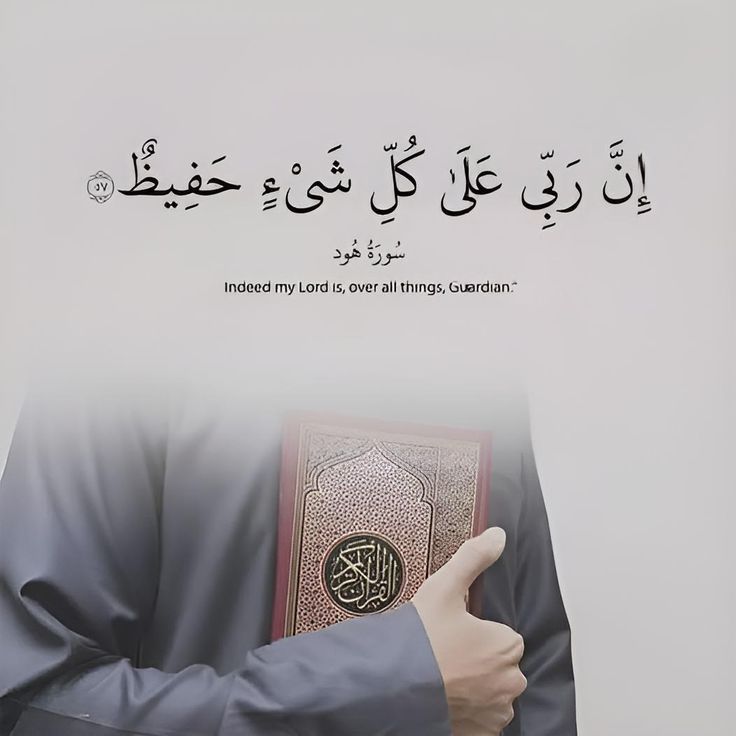 إِنَّ رَبِّى عَلَىٰ كُلِّ شَىْءٍ حَفِيظٌ ٥٧
سُورَةُ هُود
Indeed my Lord is, over all things, Guardian."
القرآن الكريم